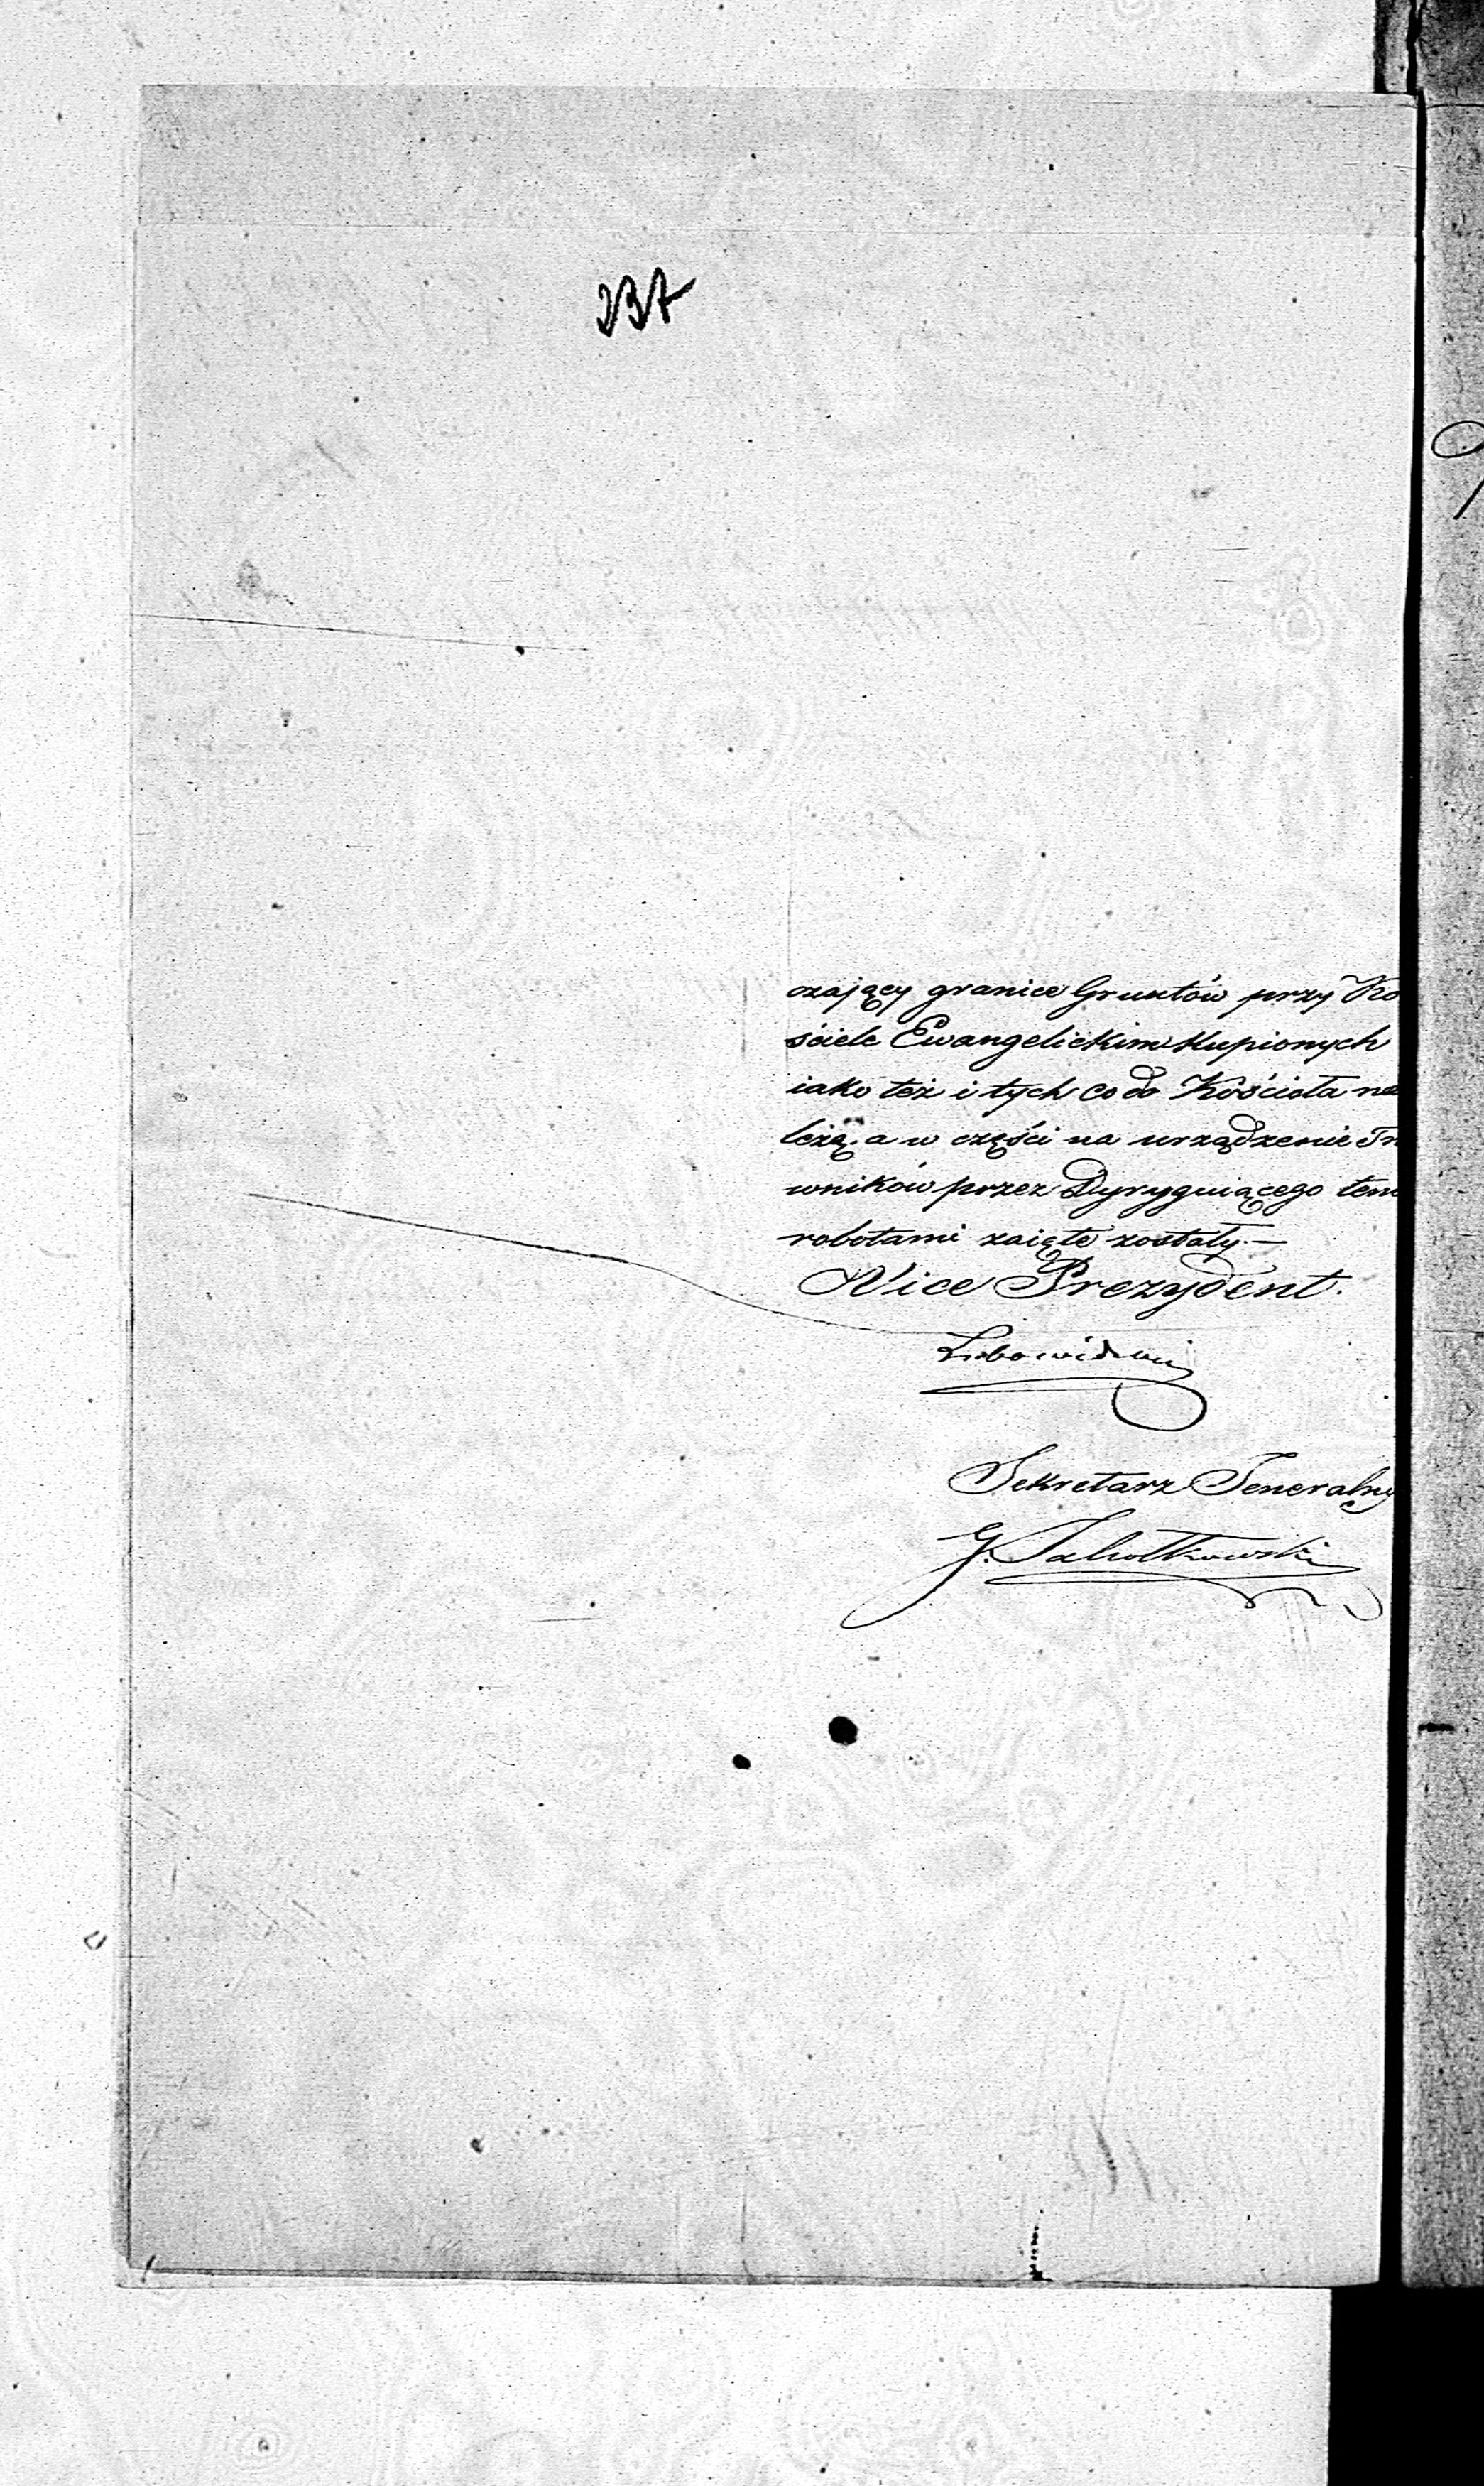 237
czaiący granice Gruntów przy Ko
ściele Ewangelickim kupionych
iako też i tych co do Kościoła na
leżą, a w części na urządzenie Tra
wników przez Dyryguiącego temi
robotami zaięte zostały.—
Vice Prezydent.
Lubowidzki
Sekretarz Jeneralny
G.